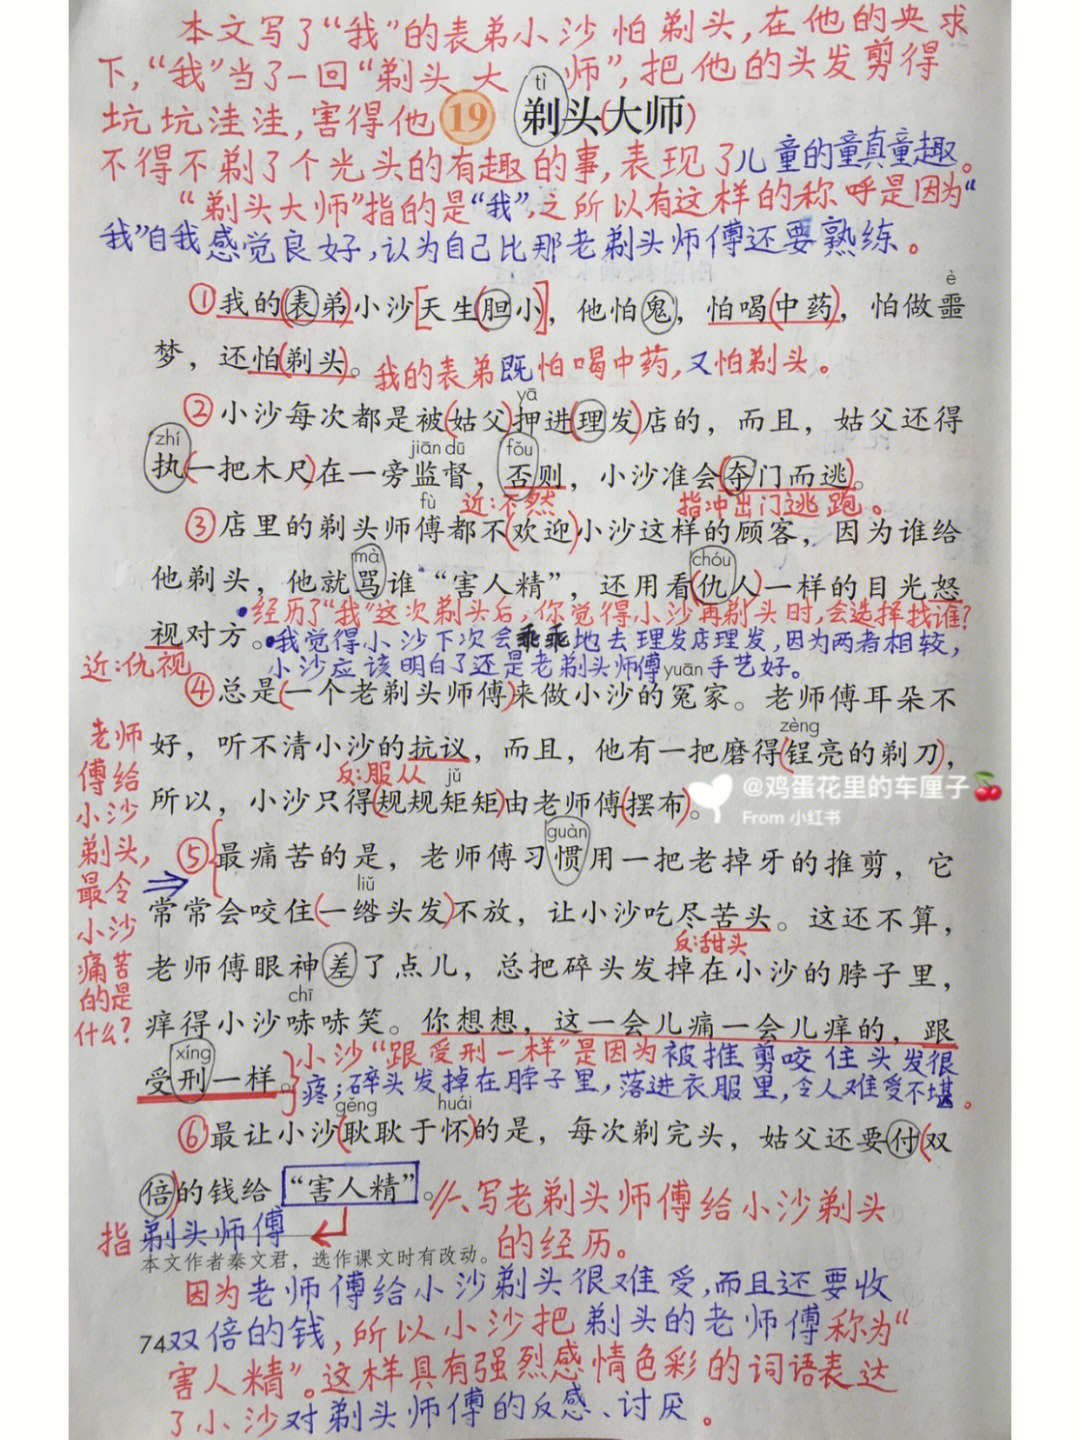 本文写了“我”的表弟小沙怕剃头,在他的央求
下,“我”当了一回“剃头大师”,把他的头发剪得
坑坑洼洼,害得他
tì
19 剃头(大师)
不得不剃了个光头的有趣的事,表现了儿童的童真童趣。
“剃头大师”指的是“我”,之所以有这样的称呼是因为“
我”自我感觉良好,认为自己比那老剃头师傅还要熟练。
è
①我的(表弟)小沙[天生(胆小)],他怕鬼,怕喝(中药),怕做噩
梦,还怕(剃头)。我的表弟既怕喝中药,又怕剃头。
yā
②小沙每次都是被(姑父)押进(理发)店的,而且,姑父还得
zhí jiān dū fǒu
执(一把木尺)在一旁监督,否则,小沙准会(夺门而逃)。
近:不然 指冲出门逃跑。
fù
③店里的剃头师傅都不(欢迎)小沙这样的顾客,因为谁给
mà chóu
他剃头,他就骂谁“害人精”,还用看(仇人)一样的目光怒
•经历了“我”这次剃头后,你觉得小沙再剃头时,会选择找谁?
视对方。•我觉得小沙下次会乖乖地去理发店理发,因为两者相较,
近:仇视
小沙应该明白了还是老剃头师傅手艺好。
yuān
④总是(一个老剃头师傅)来做小沙的冤家。老师傅耳朵不
zèng
好,听不清小沙的抗议,而且,他有一把磨得(锃亮的剃刀),
反:服从 jǔ
所以,小沙只得(规规矩矩)由老师傅(摆布)。
@鸡蛋花里的车厘子🍒
From 小红书
老师
傅给
小沙
剃头,
最令
小沙
痛苦
的是
什么?
guàn
⑤最痛苦的是,老师傅习惯用一把老掉牙的推剪,它
liǔ
常常会咬住(一绺头发)不放,让小沙吃尽苦头。这还不算,
反:甜头
老师傅眼神差了点儿,总把碎头发掉在小沙的脖子里,
chī
痒得小沙哧哧笑。你想想,这一会儿痛一会儿痒的,跟
xíng
受刑一样。
小沙“跟受刑一样”是因为被推剪咬住头发很
疼;碎头发掉在脖子里,落进衣服里,令人难受不堪。
gěng huái
⑥最让小沙(耿耿于怀)的是,每次剃完头,姑父还要付(双
倍)的钱给“害人精”。//一、写老剃头师傅给小沙剃头
的经历。
指剃头师傅
本文作者秦文君,选作课文时有改动。
因为老师傅给小沙剃头很难受,而且还要收
74
双倍的钱,所以小沙把剃头的老师傅称为“
害人精”。这样具有强烈感情色彩的词语表达
了小沙对剃头师傅的反感、讨厌。